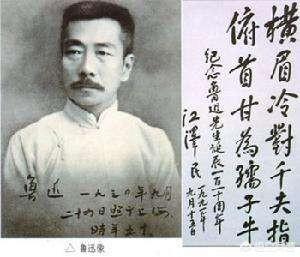 鲁迅 一九三〇年九月
二十四日照于上海
时年五十
△ 鲁迅像
橫眉冷對千夫指
俯首甘為孺子牛
纪念鲁迅先生诞辰一百一十周年
江澤民
一九九一年
九月十五日